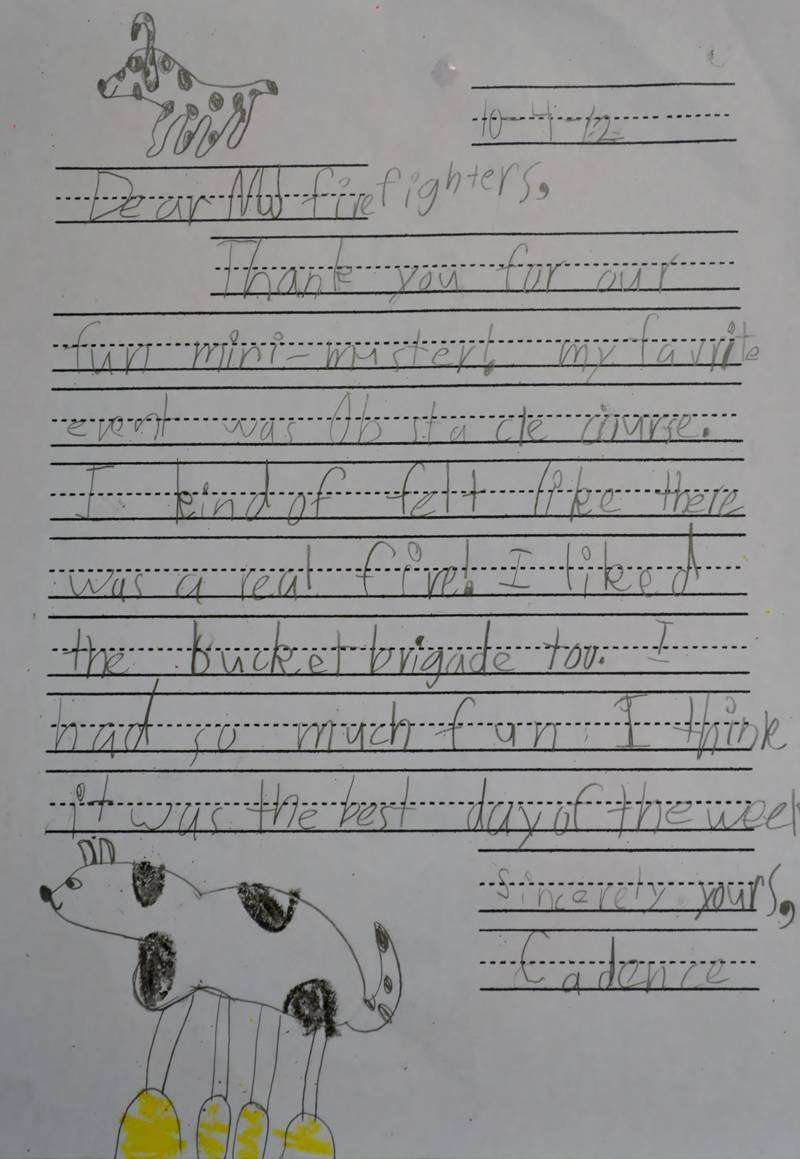 10-4-12
Dear NW firefighters,
Thank you for our
fun mini-muster! my favrite
event was Obstacle course.
I kind of felt like there
was a real fire! I liked
the bucket brigade too. I
had so much fun. I think
it was the best day of the week
sincerely yours,
Cadence